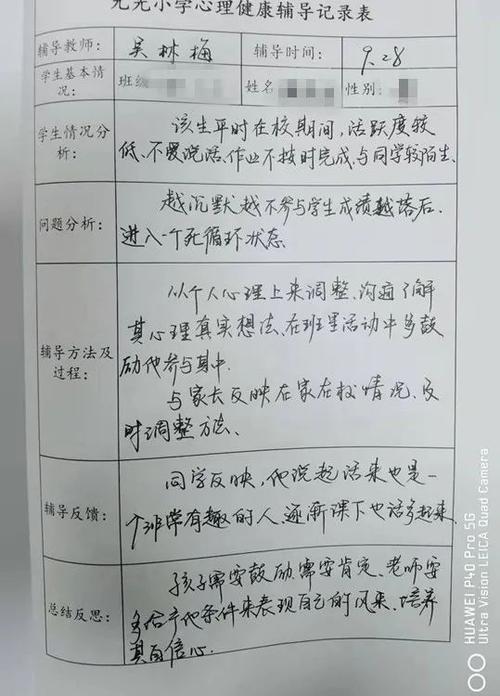 尧小学心理健康辅导记录表
辅导教师: 吴林梅 辅导时间: 9.28
学生基本情况: 班级 姓名 性别:
学生情况分析: 该生平时在校期间,活跃度较
低、不爱说话、作业不按时完成、与同学较陌生.
问题分析: 越沉默越不参与学生成绩越落后.
进入一个死循环状态
辅导方法及过程: 从个人心理上来调整、沟通了解
其心理真实想法、在班里活动中多鼓
励他参与其中.
与家长反映在家在校情况、及
时调整方法、
辅导反馈: 同学反映,他说起话来也是一
个非常有趣的人.逐渐课下也话多起来.
总结反思: 孩子需要鼓励、需要肯定、老师要
多给予他条件来表现自己的风采、培养
其自信心.
HUAWEI P40 Pro 5G
Ultra Vision LEICA Quad Camera